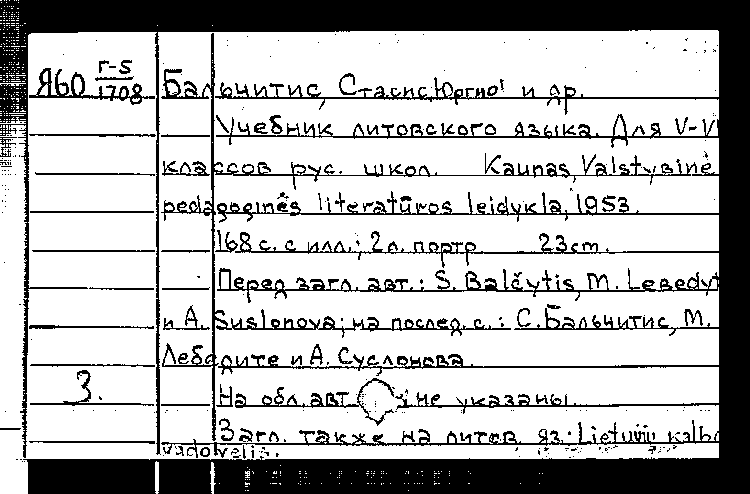 Я60 Г-5/1708 Бальчитис, Стасис Юргио и др.
Учебник литовского языка. Для V-VI
классов рус. школ. Kaunas, Valstybinė
pedagoginės literatūros leidykla, 1953.
168 с. с илл.; 2 л. портр 23cm.
Перед загл. авт.: S. Balčytis, M. Lebedyt
и A. Suslonova; на послед. с.: С. Бальчитис, М.
Лебедите и А. Суслонова.
3. На обл. авт не указаны.
Загл. также на литов. яз.: Lietuvių kalbo
vadovėlis.